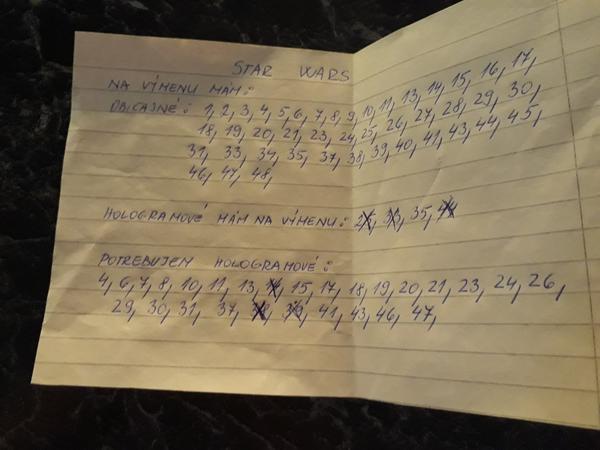 STAR WARS
NA VÍMENU MÁM:
OBICAJNÉ: 1, 2, 3, 4, 5, 6, 7, 8, 9, 10, 11, 13, 14, 15, 16, 17,
18, 19, 20, 21, 23, 24, 25, 26, 27, 28, 29, 30,
31, 33, 34, 35, 37, 38, 39, 40, 41, 43, 44, 45,
46, 47, 48,
HOLOGRAMOVÉ MÁM NA VÍMENU: 35,
POTREBUJEM HOLOGRAMOVÉ:
4, 6, 7, 8, 10, 11, 13, 15, 17, 18, 19, 20, 21, 23, 24, 26,
29, 30, 31, 37, 41, 43, 46, 47,